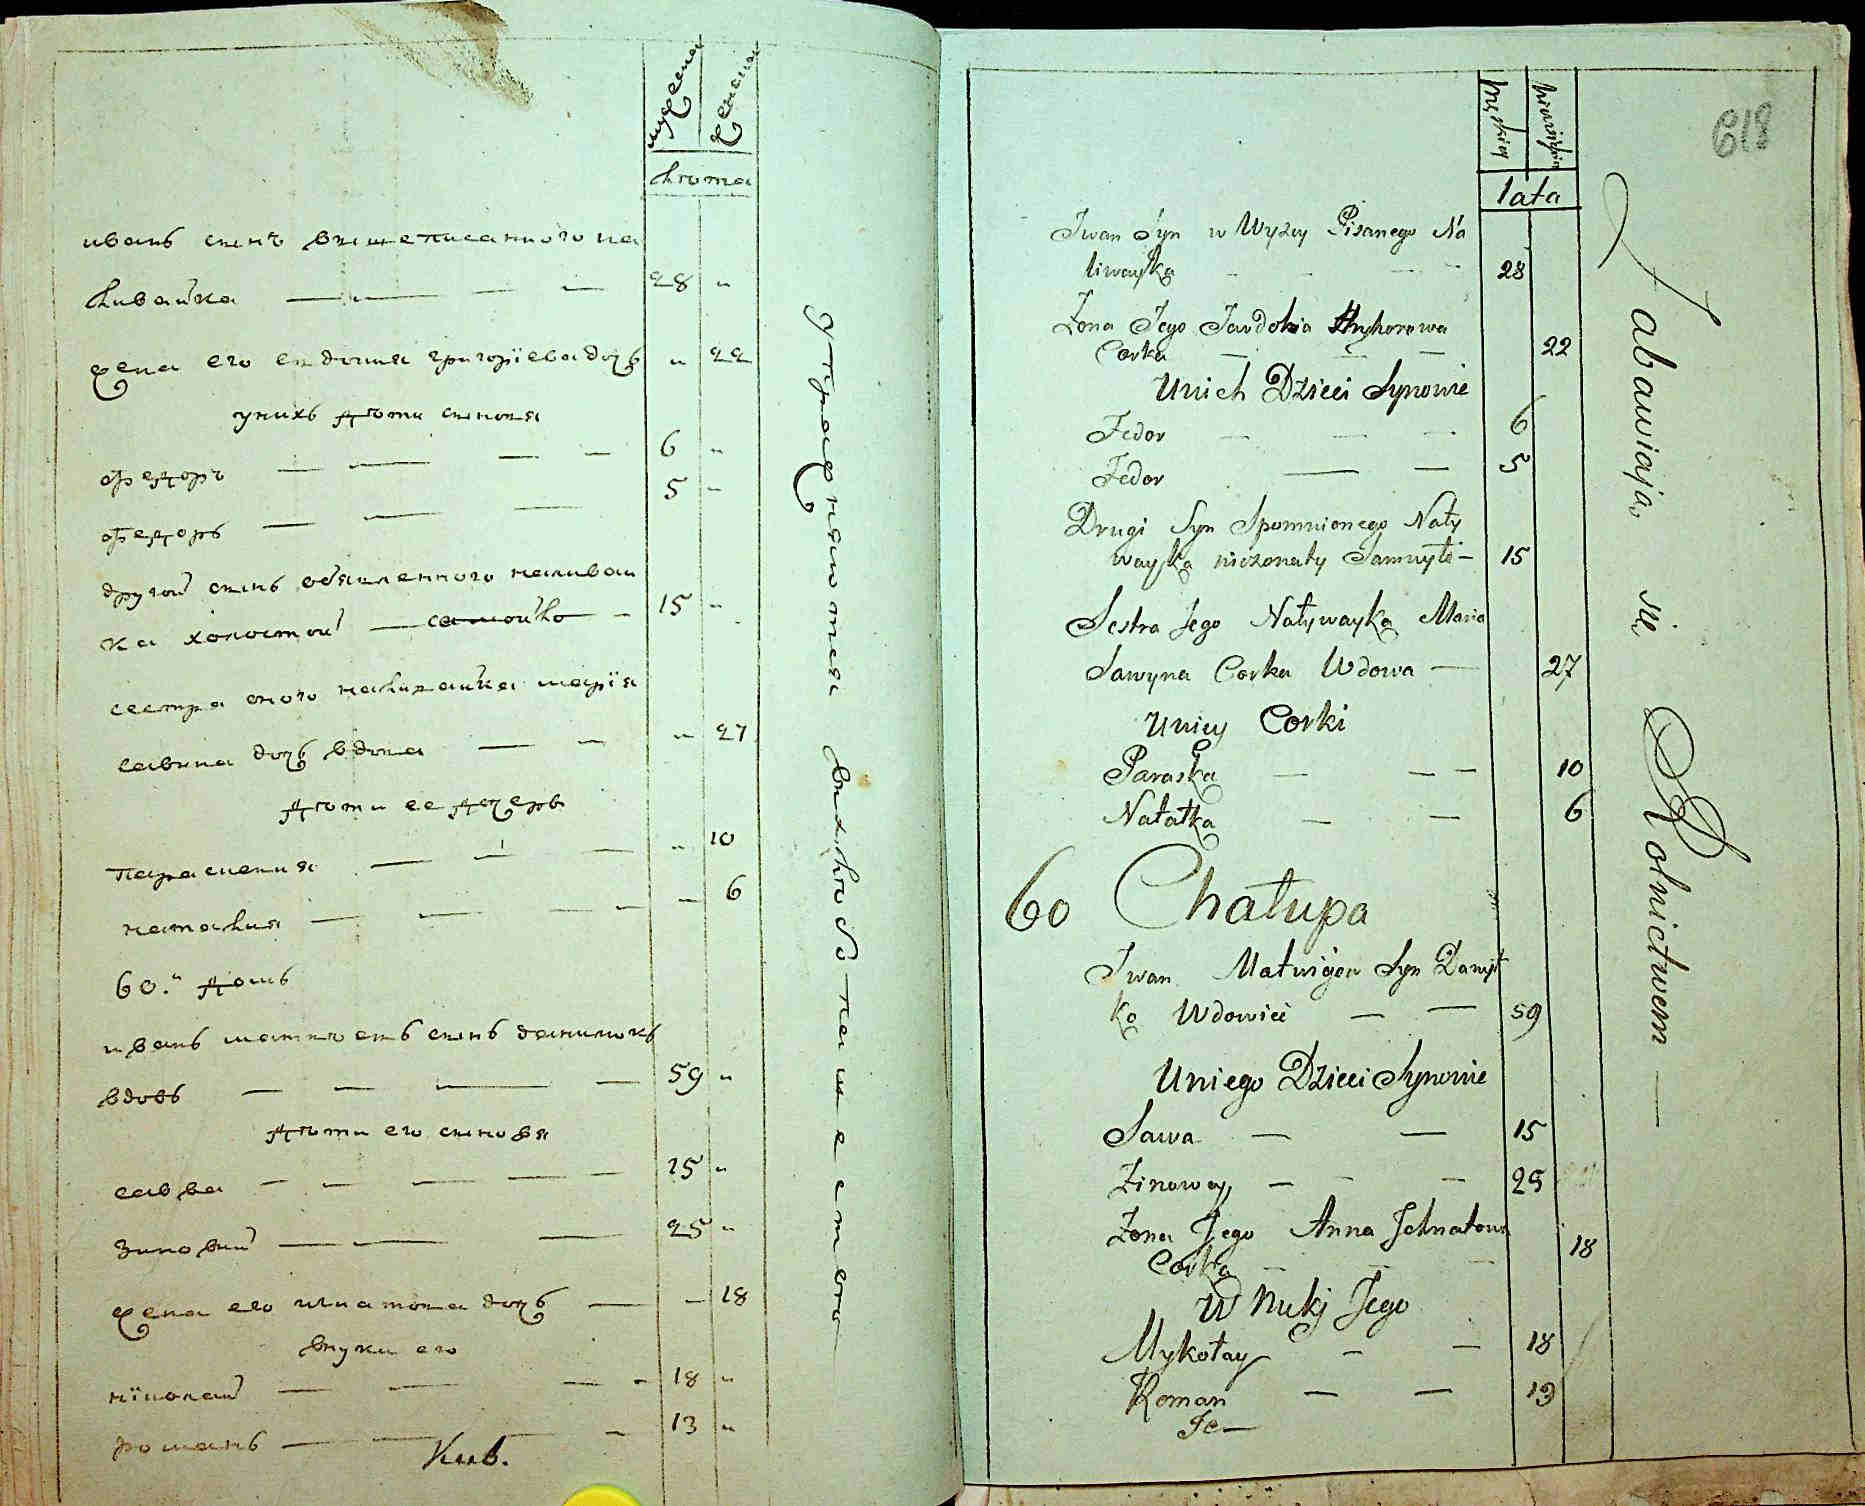 мужеска
женска
лѣта
иванъ сынъ вышеписанного на
ливайка 28 "
жена его евдокия григорїева дочь " 22
у нихъ дѣти сыновя
федоръ 6 "
федоръ 5 "
другой сынъ обявленного наливай
ка холостой самойло 15 "
сестра оного наливайка марїя
савина дочь вдова " 27
дѣти ее дочерѣ
параскевия " 10
наталия 6
60.й домъ
иванъ матвѣевъ сынъ данилюкъ
вдовъ 59 "
дѣти его сыновья
савва 15 "
зиновий 25 "
жена его игнатова дочь 18
внуки его
нїколай 18 "
романъ 13 "
Кив.
упражняются въ хлѣбопашества
618
męskiey
lata
Iwan Syn w Wyżey Pisanego Na
liwayka 28
Żona Jego Jawdokia Hryhorowa
Corka 22
Unich Dzieci Synowie
Fedor 6
Fedor 5
Drugi Syn Spomnionego Nały
wayka nieżonaty Samuyło 15
Sestra Jego Naływayka Maria
Sawyna Corka Wdowa 27
Uniey Corki
Paraska 10
Natałka 6
60 Chałupa
Iwan Matwijow Syn Danył
ko Wdowiec 59
Uniego Dzieci Synowie
Sawa 15
Zinowey 25
Żona Jego Anna Jehnatowa
Corka 18
Wnuki Jego
Mykołay 18
Roman 13
Je
Zabawiają się Rolnictwem